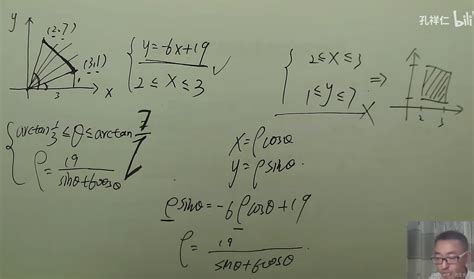 孔祥仁 bilibili
y
(2,7)
(3,1)
3
x
y=-6x+19
2≤x≤3
2≤x≤3
1≤y≤7
⇒
2 3
x
arctan 1/3 ≤θ≤arctan 7/2
ρ=19/(sinθ+6cosθ)
x=ρcosθ
y=ρsinθ
ρsinθ=-6ρcosθ+19
ρ=19/(sinθ+6cosθ).